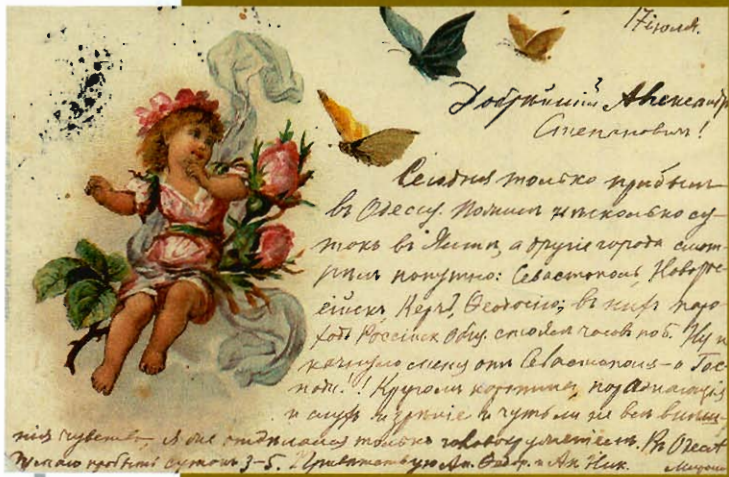 17 июля.
Добрѣйшій Александръ
Степановичъ!
Сегодня только прибылъ
въ Одессу. Пожилъ нѣсколько су-
токъ въ Ялтѣ, а другіе города смот-
рѣлъ попутно: Севастополь, Новорос-
сійскъ, Керчь, Ѳеодосію; въ нихъ паро-
ходъ Россійск Общ. стоялъ часовъ по 6. Ну и
качнуло меня отъ Севастополя – о Гос-
поди!! Кругомъ картина, поражающія
и слухъ и зрѣніе и чуть ли не все
чувства, я же отдѣлался только головокруженіемъ. Въ Одессѣ
думаю пробыть сутокъ 3-5. Привѣтствую Ан. Ѳедор. и Ан. Ник.